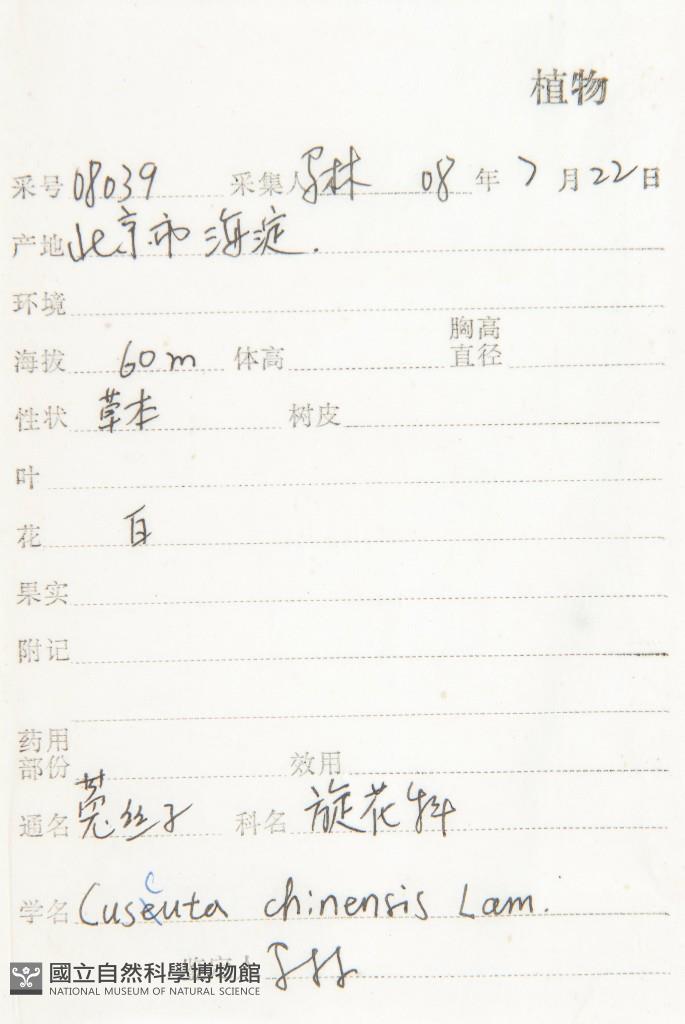 植物
采号 08039 采集人 马林 08 年 7 月 22 日
产地 北京市 海淀.
环境
海拔 60m 体高 胸高直径
性状 草本 树皮
叶
花 白
果实
附记
药用部份 效用
通名 菟丝子 科名 旋花科
学名 Cuscuta chinensis Lam.
國立自然科學博物館
NATIONAL MUSEUM OF NATURAL SCIENCE